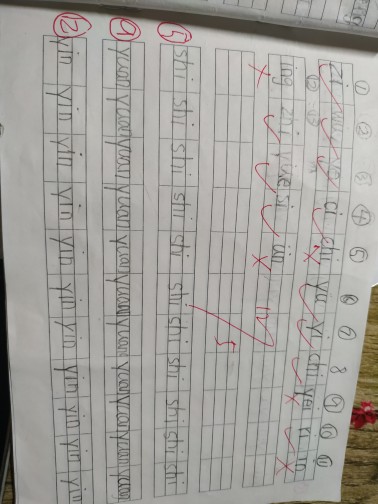 ① ② ③ ④ ⑤ ⑥ ⑦ ⑧ ⑨ ⑩ ⑪
zi wu ye ci chi yu yi chi yei ri in
⑫ ⑬
ing zhi yue si ün
⑤ shi shi shi shi shi shi shi shi shi shi shi
⑨ yuan yuan yuan yuan yuan yuan yuan yuan yuan yuan yuan
⑫ yin yin yin yin yin yin yin yin yin yin yin